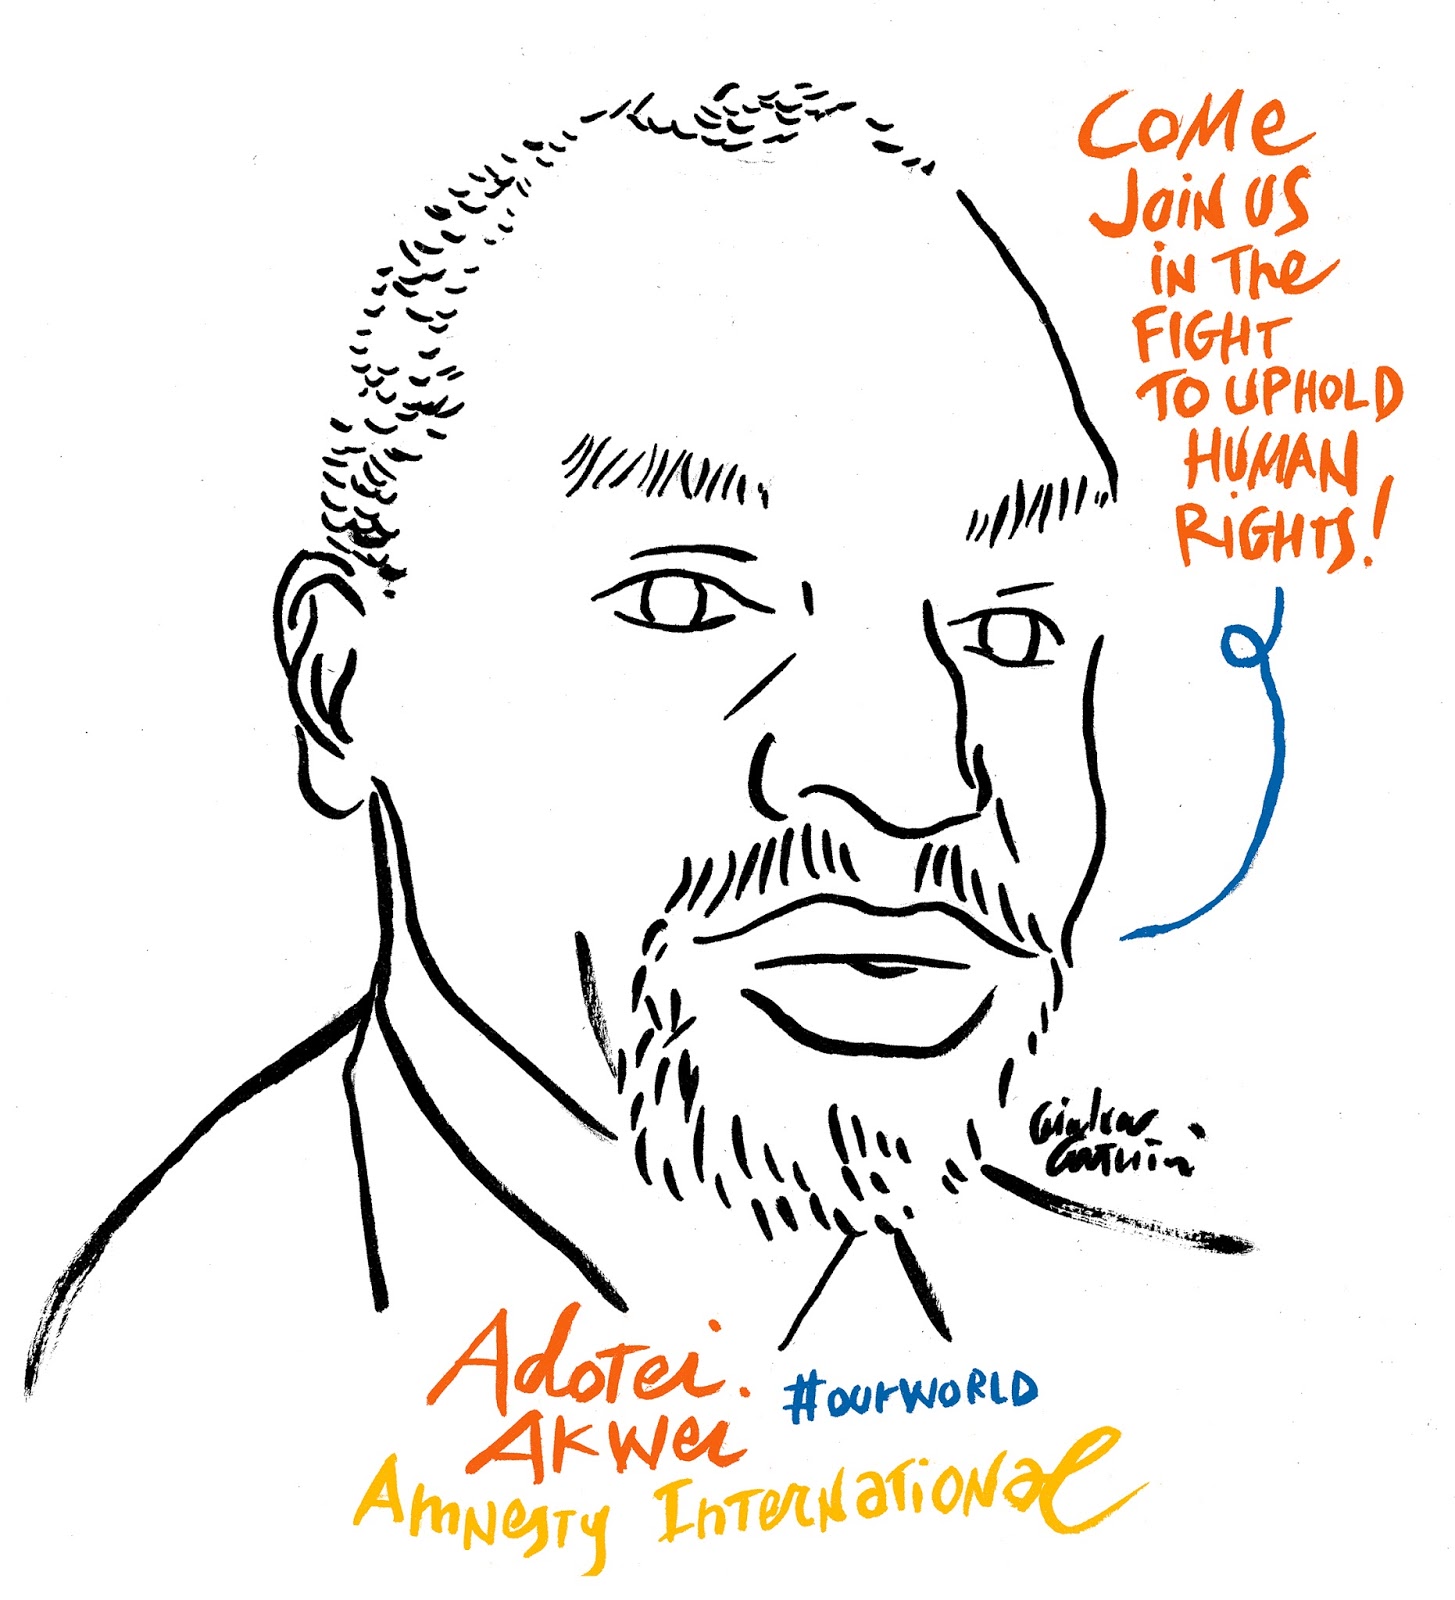 COMe
JOIN US
IN The
FIGHT
TO UPHOLD
HUMAN
RIGHTS!
Adotei
AKWEI
#OURWORLD
AMNesTy INTERNATIONAL